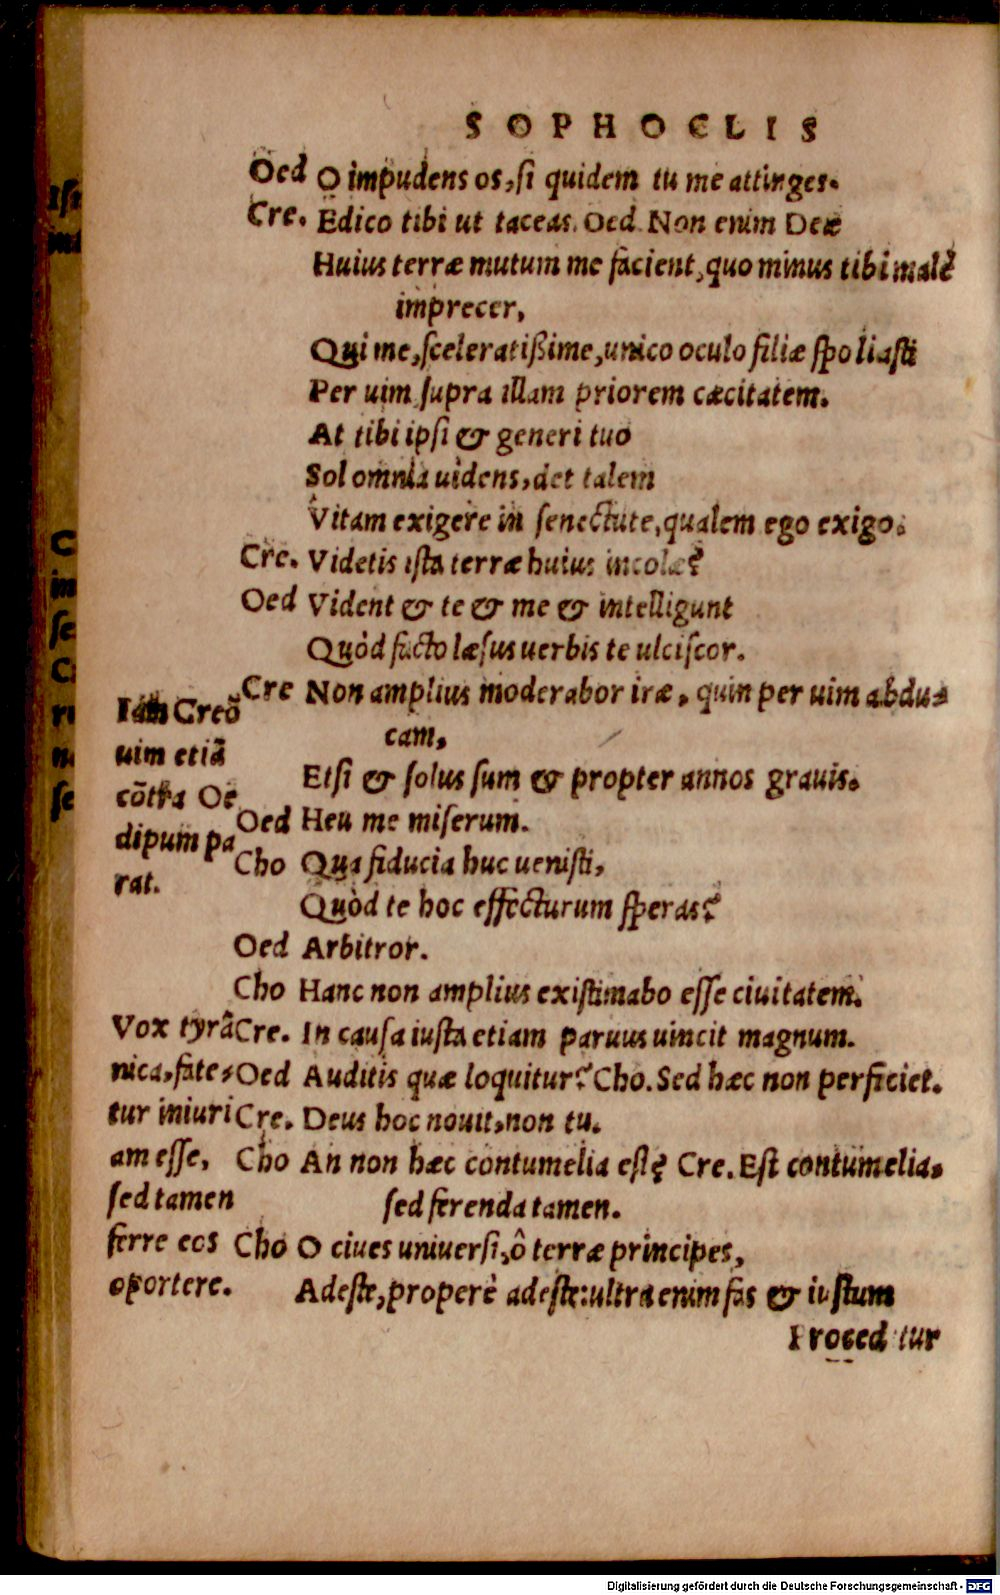 SOPHOCLIS
Oed O impudens os, si quidem tu me attinges.
Cre. Edico tibi ut taceas. Oed. Non enim Deæ
Huius terræ mutum me facient, quo minus tibi malè
imprecer,
Qui me, sceleratißime, unico oculo filiæ spoliasti
Per uim supra illam priorem cæcitatem.
At tibi ipsi & generi tuo
Sol omnia uidens, det talem
Vitam exigere in senectute, qualem ego exigo.
Cre. Videtis ista terræ huius incolæ?
Oed Vident & te & me & intelligunt
Quòd facto læsus uerbis te ulciscor.
Cre Non amplius moderabor iræ, quin per uim abdu-
cam,
Etsi & solus sum & propter annos grauis.
Oed Heu me miserum.
Cho Qua fiducia huc uenisti,
Quòd te hoc effecturum speras?
Oed Arbitror.
Cho Hanc non amplius existimabo esse ciuitatem.
Cre. In causa iusta etiam paruus uincit magnum.
Oed Auditis quæ loquitur? Cho. Sed hæc non perficiet.
Cre. Deus hoc nouit, non tu.
Cho An non hæc contumelia est? Cre. Est contumelia,
sed ferenda tamen.
Cho O ciues uniuersi, ô terræ principes,
Adeste, properè adeste: ultra enim fas & iustum
Proced tur
Iam Creõ
uim etiã
cõtra Oe
dipum pa
rat.
Vox tyrã
nica, fate-
tur iniuri
am esse,
sed tamen
ferre eos
oportere.
Digitalisierung gefördert durch die Deutsche Forschungsgemeinschaft - DFG